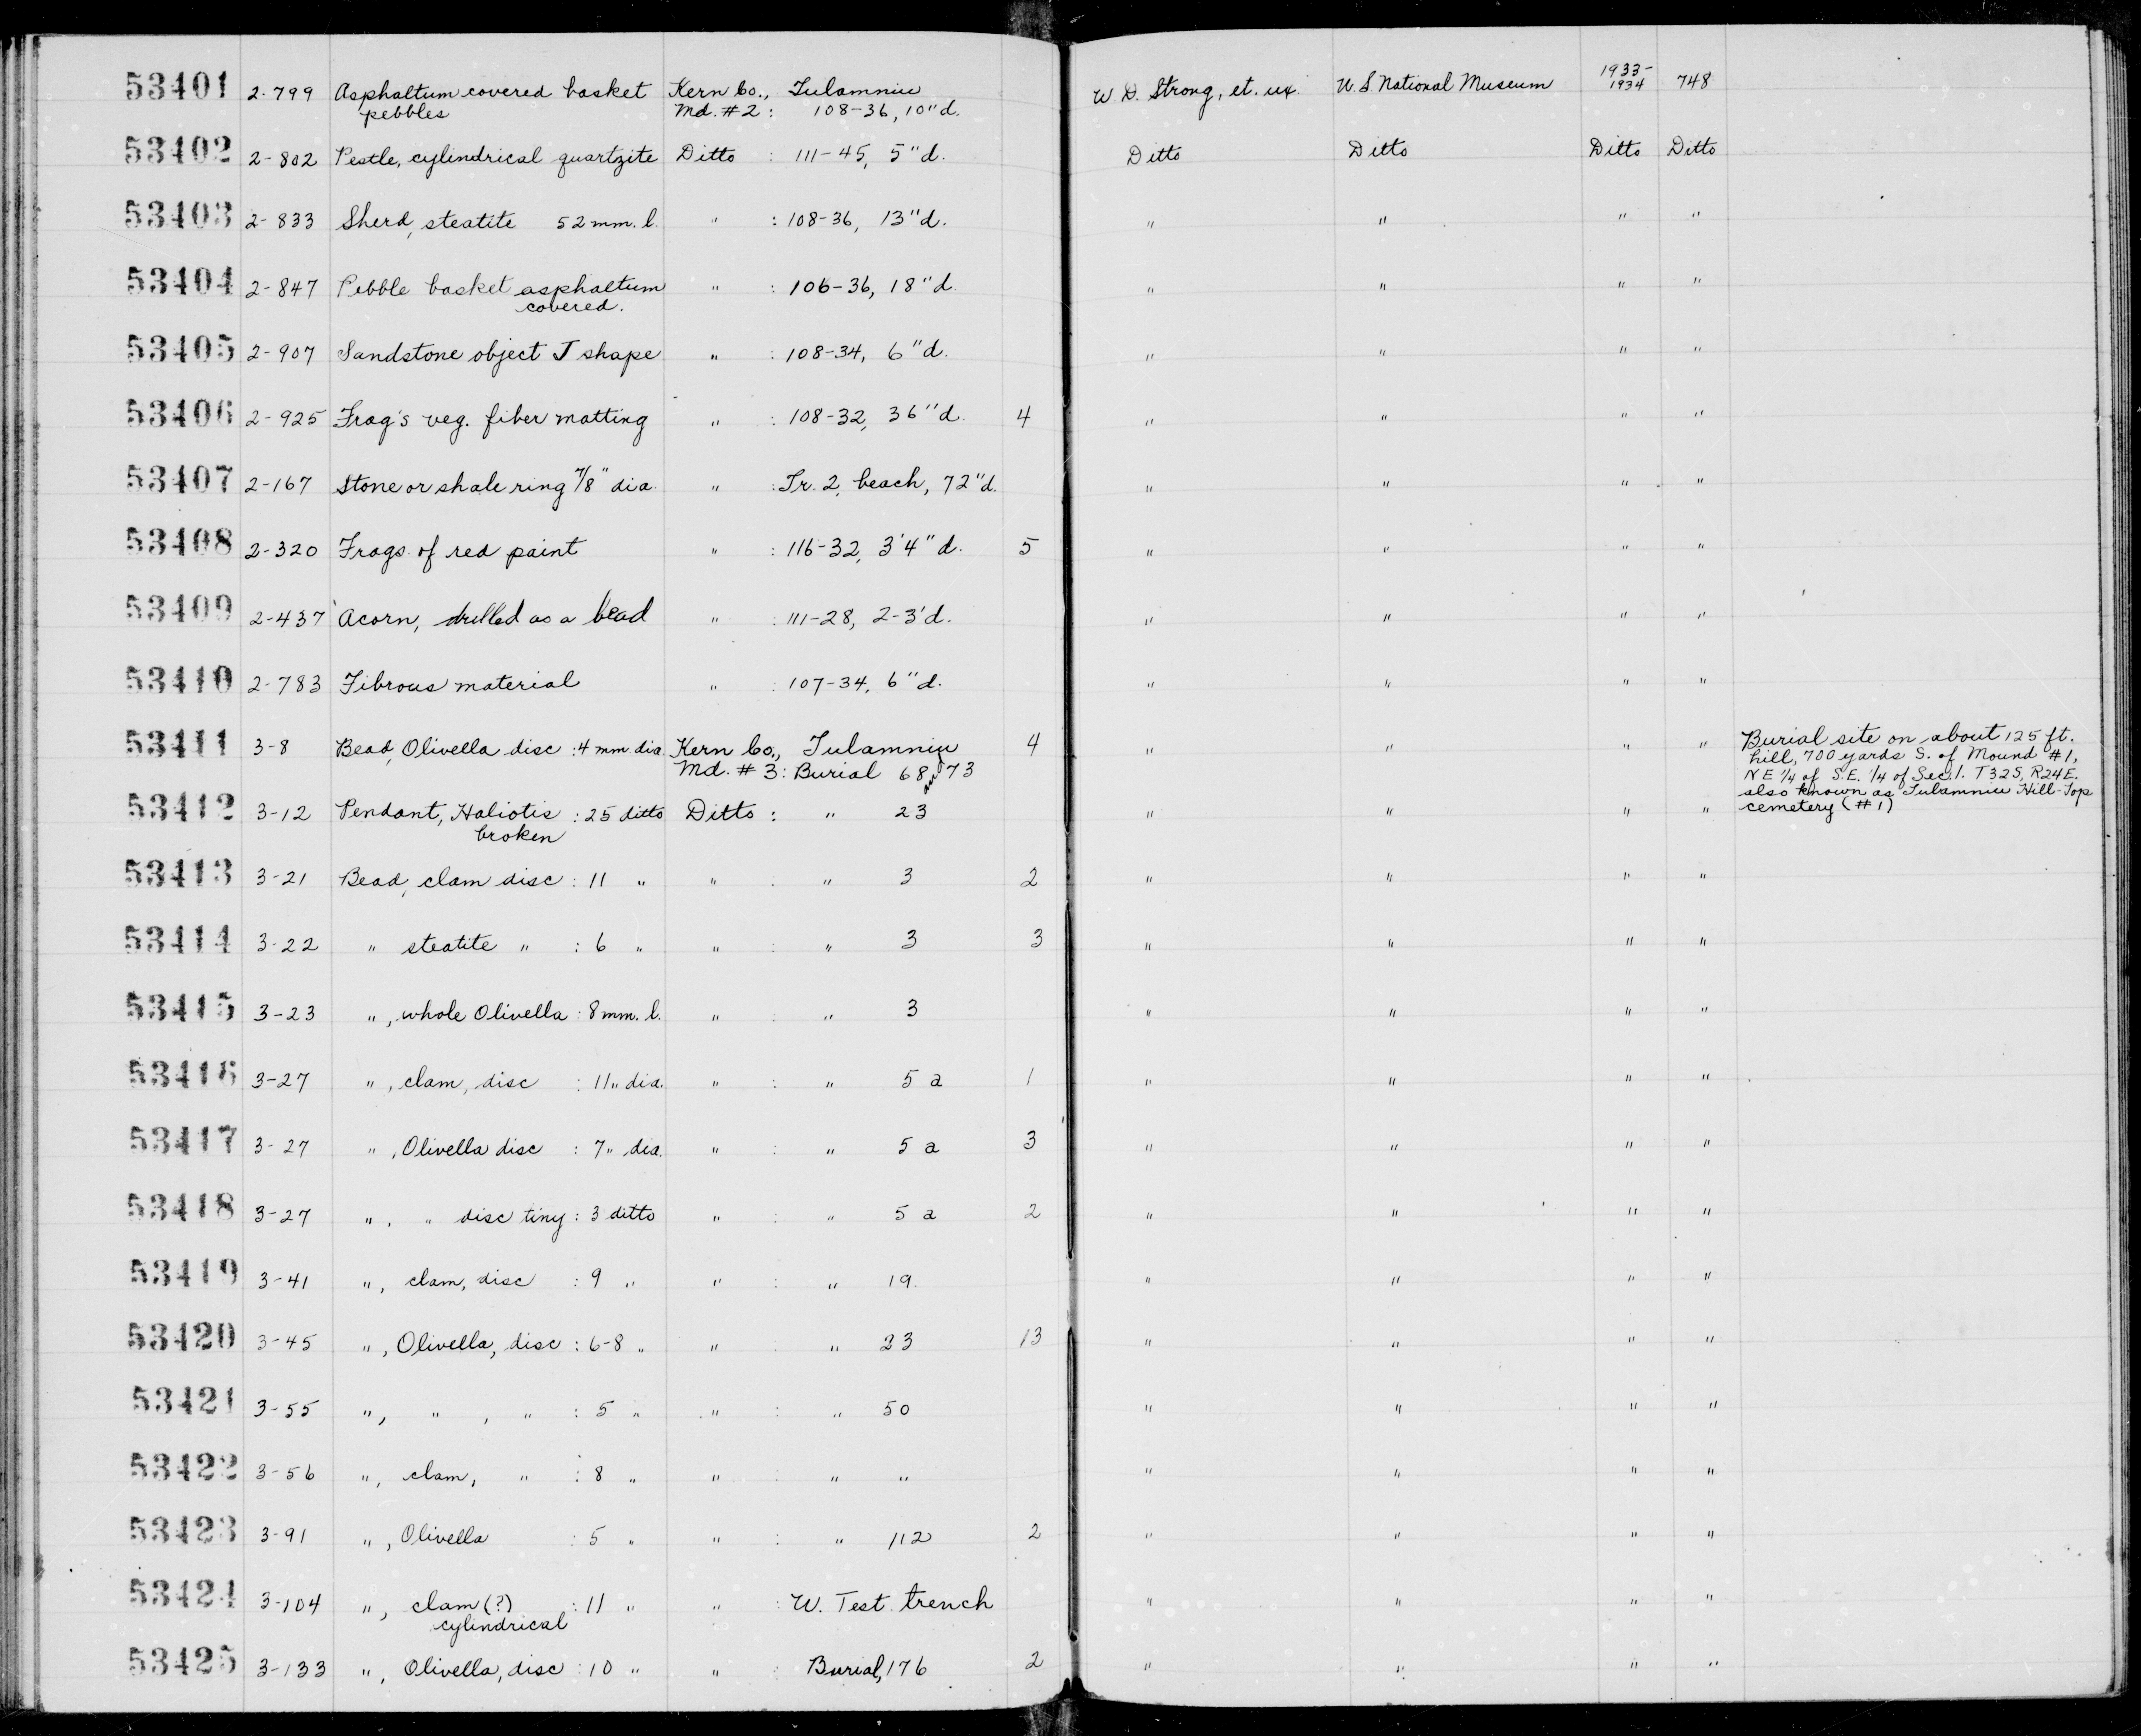 53401 2-799 Asphaltum covered basket Kern Co., Tulamniu W. D. Strong, et. ux. U.S. National Museum 1933- 748
pebbles Md. #2: 108-36, 10"d. 1934
53402 2-802 Pestle, cylindrical quartzite Ditto : 111-45, 5"d. Ditto Ditto Ditto Ditto
53403 2-833 Sherd, steatite 52 mm. l. " : 108-36, 13"d. " " " "
53404 2-847 Pebble basket asphaltum " : 106-36, 18"d. " " " "
covered.
53405 2-907 Sandstone object J shape " : 108-34, 6"d. " " " "
53406 2-925 Frag's veg. fiber matting " : 108-32, 36"d. 4 " " " "
53407 2-167 Stone or shale ring 7/8" dia. " : Tr. 2, beach, 72"d. " " " "
53408 2-320 Frags. of red paint " : 116-32, 3'4"d. 5 " " " "
53409 2-437 Acorn, drilled as a bead " : 111-28, 2-3'd. " " " "
53410 2-783 Fibrous material " : 107-34, 6"d. " " " "
53411 3-8 Bead, Olivella disc : 4 mm dia Kern Co., Tulamniu 4 " " " " Burial site on about 125 ft.
Md. #3: Burial 68 and 73 hill, 700 yards S. of Mound #1,
NE 1/4 of S.E. 1/4 of Sec. 1. T32S, R24E.
also known as Tulamniu Hill-Top
53412 3-12 Pendant, Haliotis : 25 ditto Ditto : " 23 " " " " cemetery (#1)
broken
53413 3-21 Bead, clam disc : 11 " " : " 3 2 " " " "
53414 3-22 " steatite " : 6 " " : " 3 3 " " " "
53415 3-23 ", whole Olivella : 8 mm. l. " : " 3 " " " "
53416 3-27 ", clam, disc : 11 " dia. " : " 5 a 1 " " " "
53417 3-27 ", Olivella disc : 7 " dia. " : " 5 a 3 " " " "
53418 3-27 ", " disc tiny : 3 ditto " : " 5 a 2 " " " "
53419 3-41 ", clam, disc : 9 " " : " 19. " " " "
53420 3-45 ", Olivella, disc : 6-8 " " : " 23 13 " " " "
53421 3-55 ", " , " : 5 " " : " 50 " " " "
53422 3-56 ", clam, " : 8 " " : " " " " " "
53423 3-91 ", Olivella : 5 " " : " 112 2 " " " "
53424 3-104 ", clam (?) : 11 " " : W. Test trench " " " "
cylindrical
53425 3-133 ", Olivella, disc : 10 " " : Burial, 176 2 " " " "